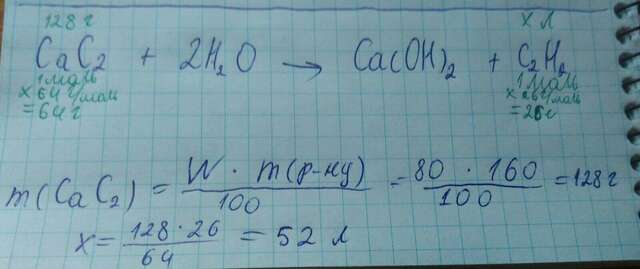 128 г x л
CaC2 + 2H2O → Ca(OH)2 + C2H2
1 моль 1 моль
x 64 г/моль x 26 г/моль
= 64 г = 26 г
m(CaC2) = W · m(р-ну) / 100 = 80 · 160 / 100 = 128 г
x = 128 · 26 / 64 = 52 л